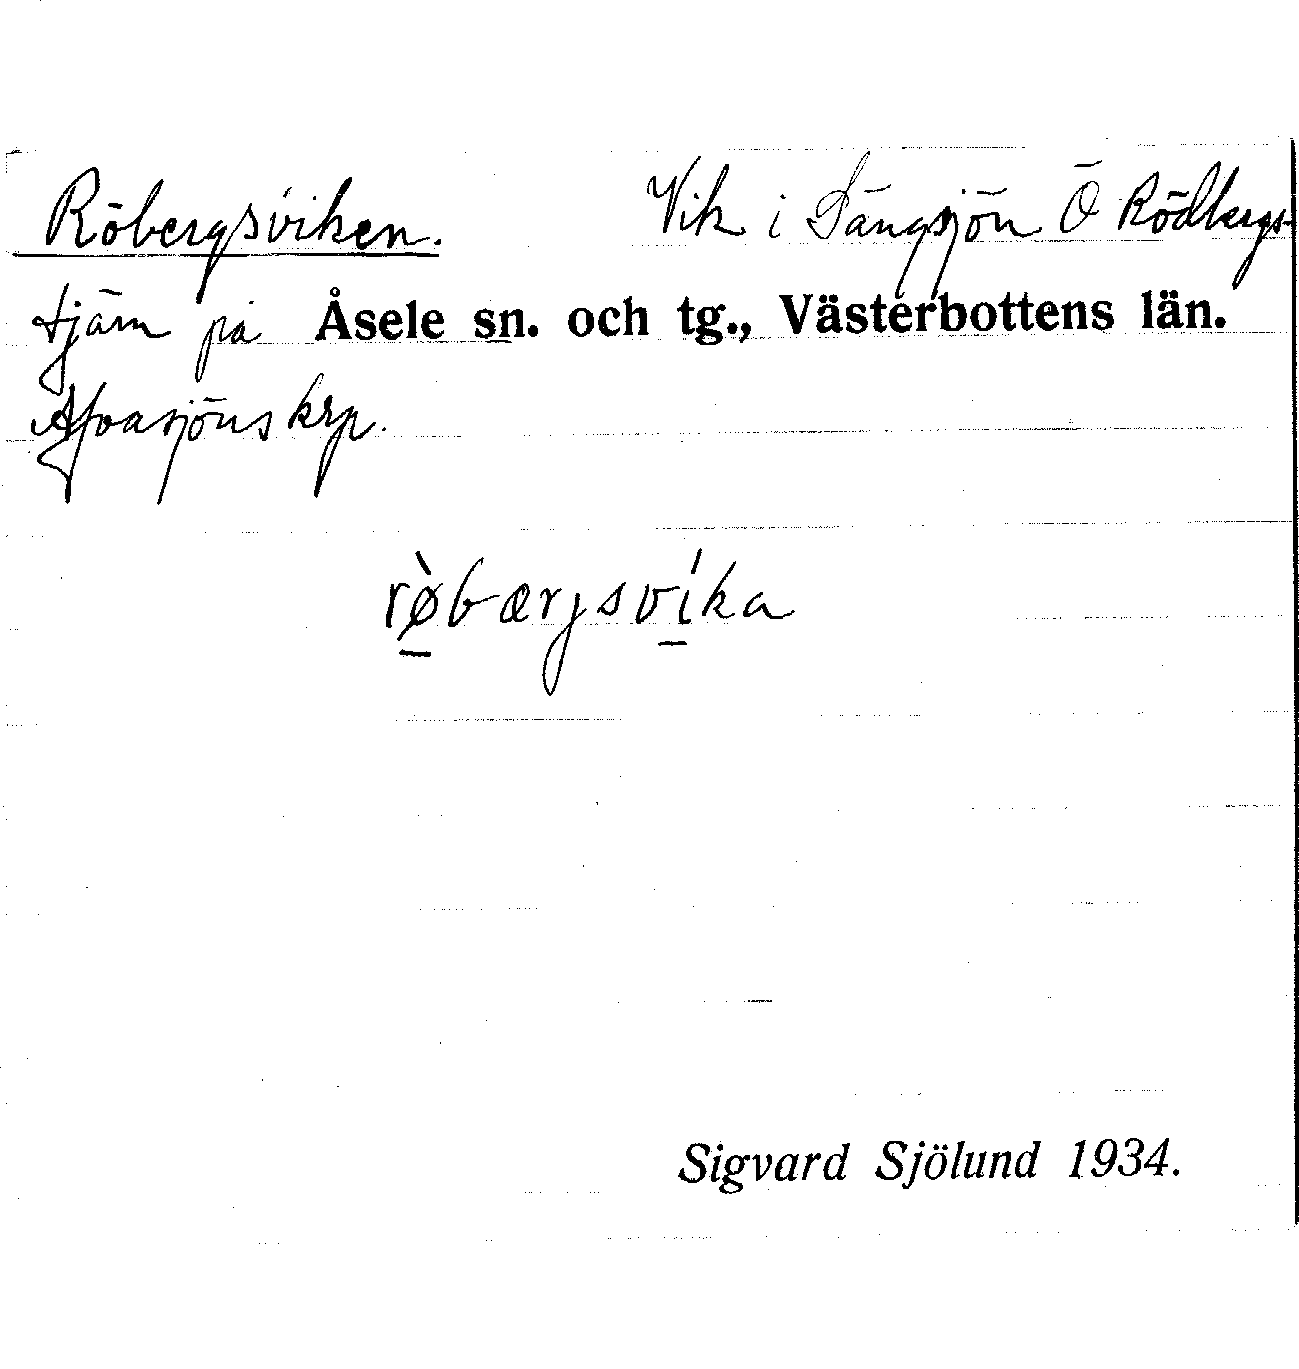 Röbergsviken. Vik i Långsjön Ö Rödbergs-
tjärn på Åsele sn. och tg., Västerbottens län.
Afvasjöns krp.
rø̀bærjsvíka
Sigvard Sjölund 1934.